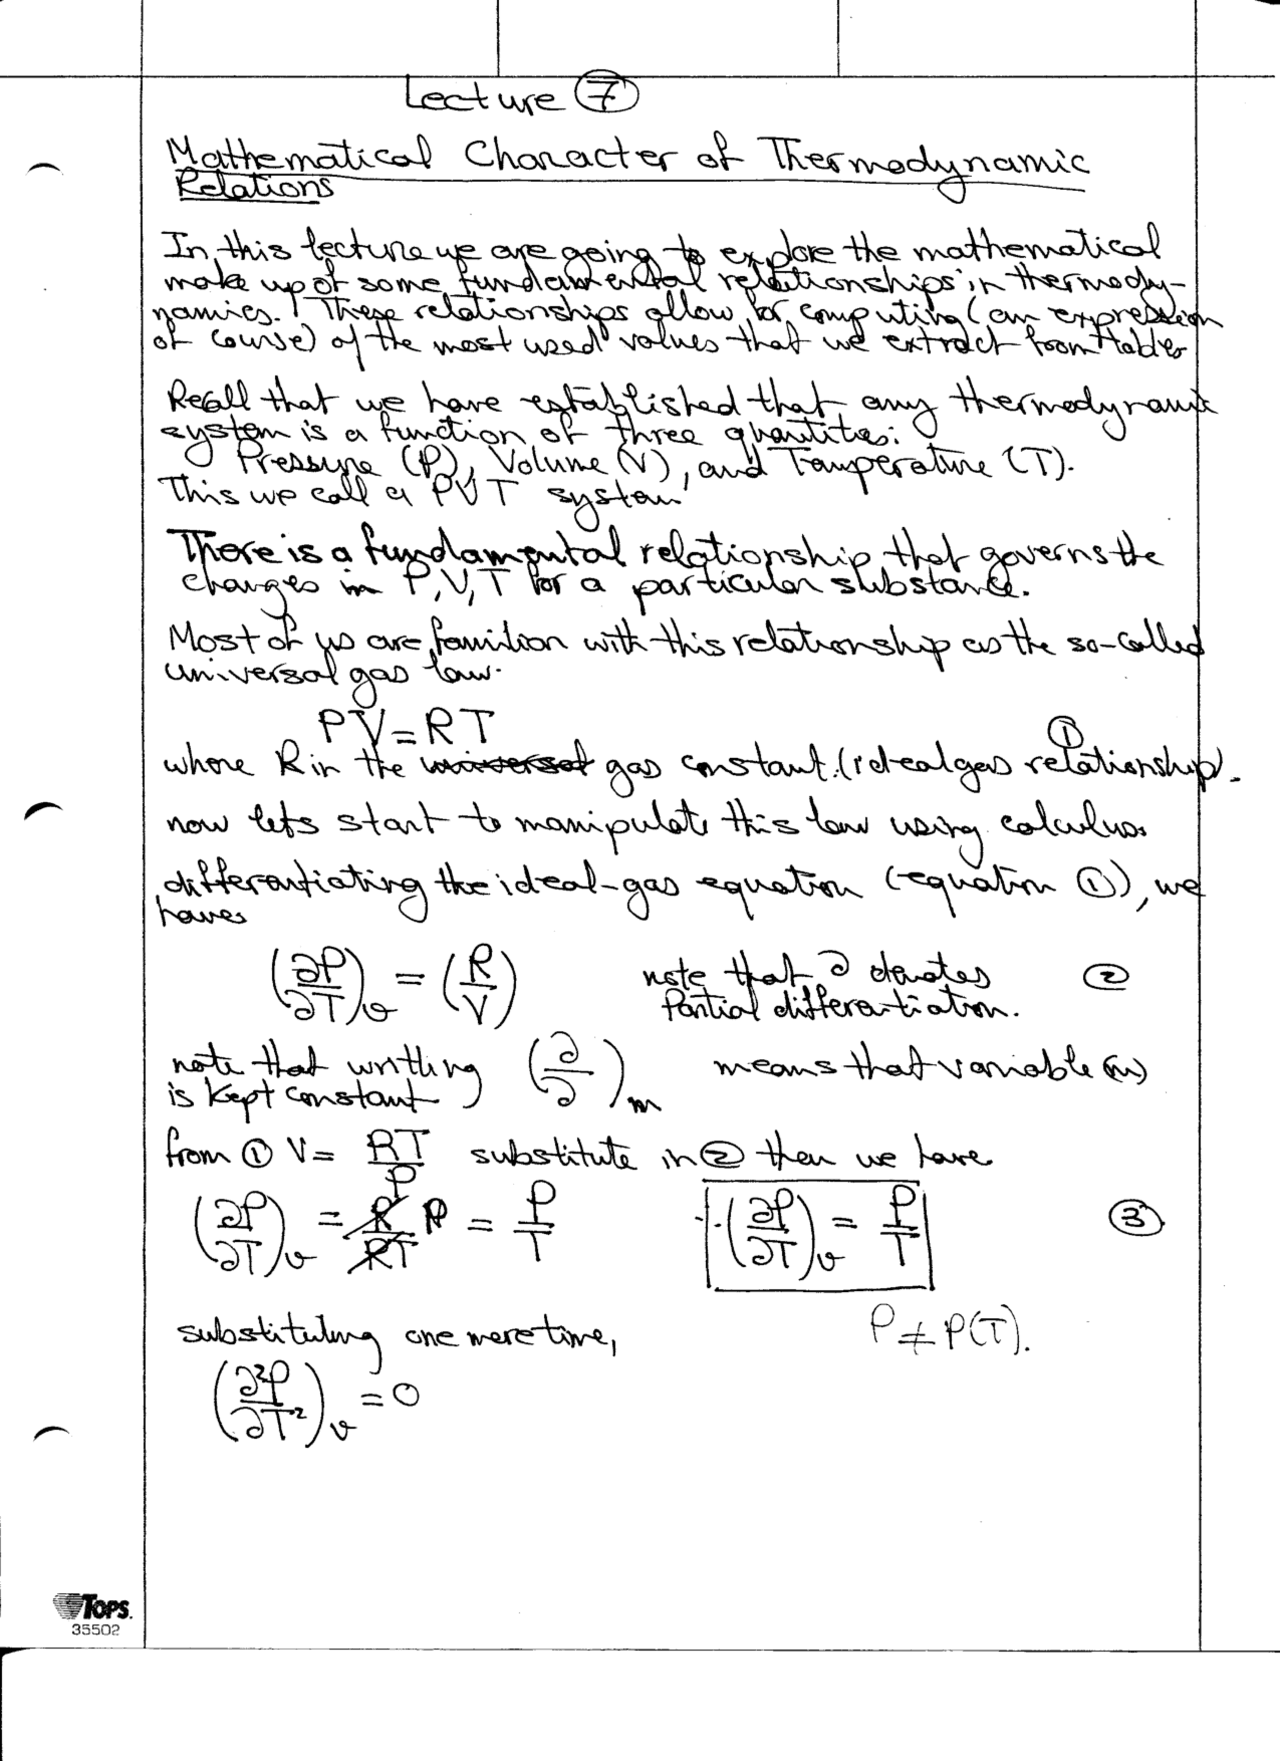 Lecture ⑦
Mathematical Character of Thermodynamic
Relations
In this lecture we are going to explore the mathematical
make up of some fundamental relationships in thermody-
namics. These relationships allow for computing (an expression
of course) of the most used values that we extract from tables
Recall that we have established that any thermodynamic
system is a function of three quantities:
Pressure (P), Volume (V), and Temperature (T).
This we call a PVT system
There is a fundamental relationship that governs the
changes in P, V, T for a particular substance.
Most of us are familiar with this relationship as the so-called
universal gas law.
PV = RT ①
where R is the universal gas constant. (ideal gas relationship).
now lets start to manipulate this law using calculus.
differentiating the ideal-gas equation (equation ①), we
have
(∂P/∂T)v = (R/V) note that ∂ denotes ②
Partial differentiation.
note that writting (∂/∂)m means that variable (m)
is kept constant
from ① V = RT/P substitute in ② then we have
(∂P/∂T)v = R/RT P = P/T ∴ (∂P/∂T)v = P/T ③
substituting one more time, P ≠ P(T).
(∂²P/∂T²)v = 0
TOPS.
35502